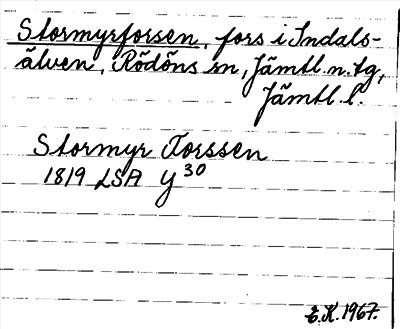 Stormyrforsen, fors i Indals-
älven, Rödöns sn, Jämtl. n. tg,
Jämtl. l.
Stormyr Forssen
1819 LSA Y 30
E.K. 1967.